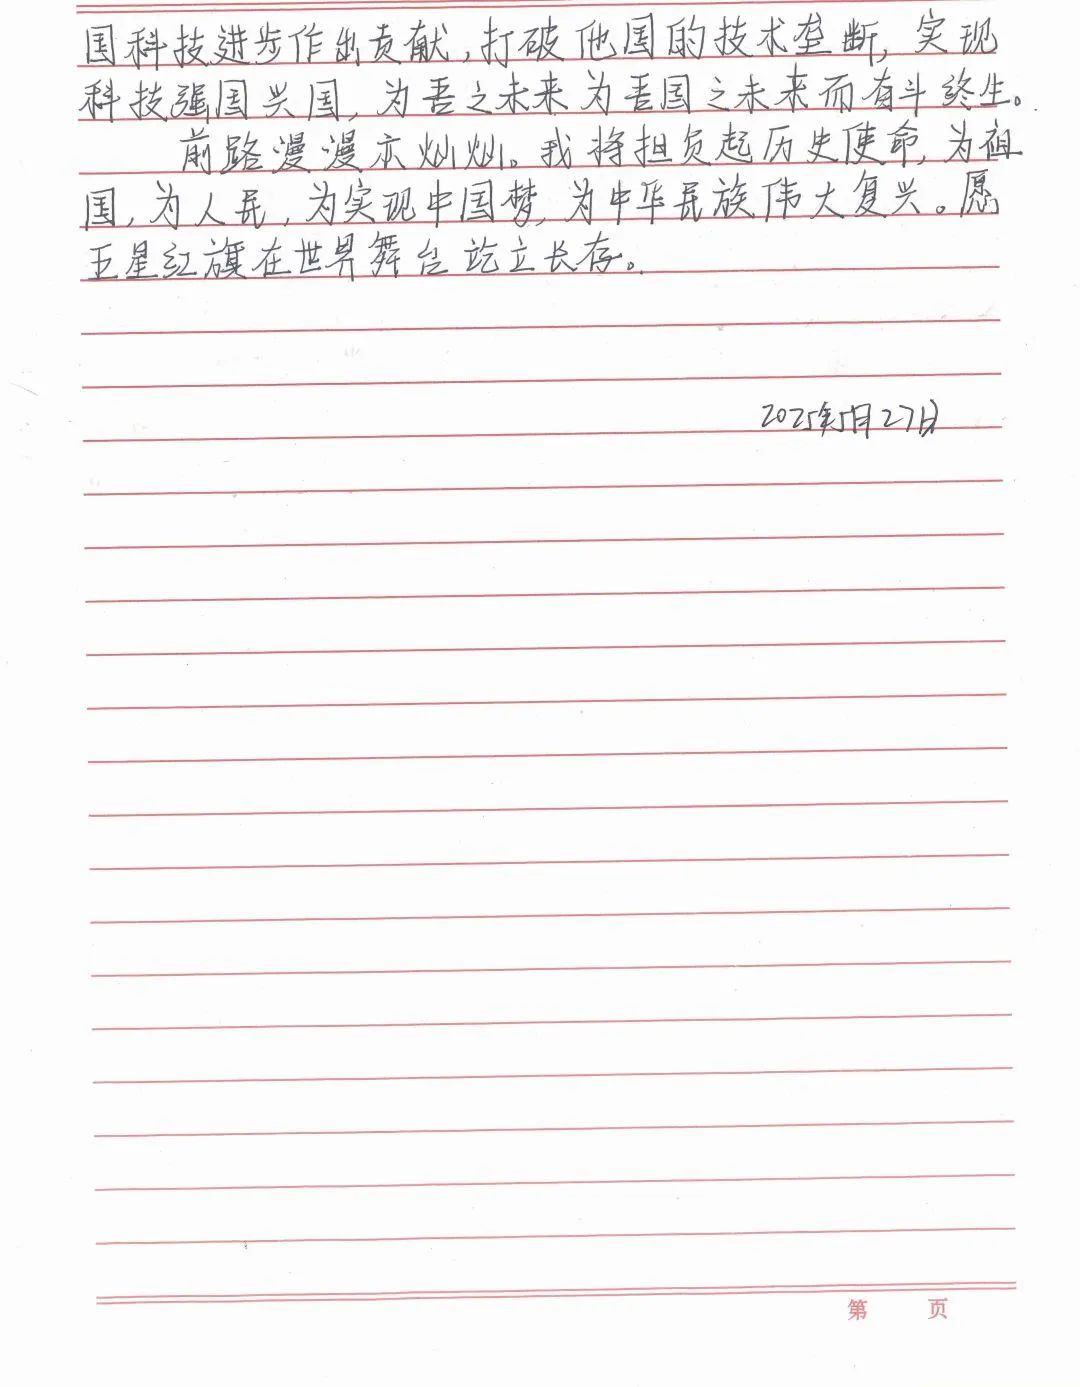 国科技进步作出贡献，打破他国的技术垄断，实现
科技强国兴国，为吾之未来为吾国之未来而奋斗终生。
前路漫漫亦灿灿。我将担负起历史使命，为祖
国，为人民，为实现中国梦，为中华民族伟大复兴。愿
五星红旗在世界舞台屹立长存。
2025年5月27日
第 页